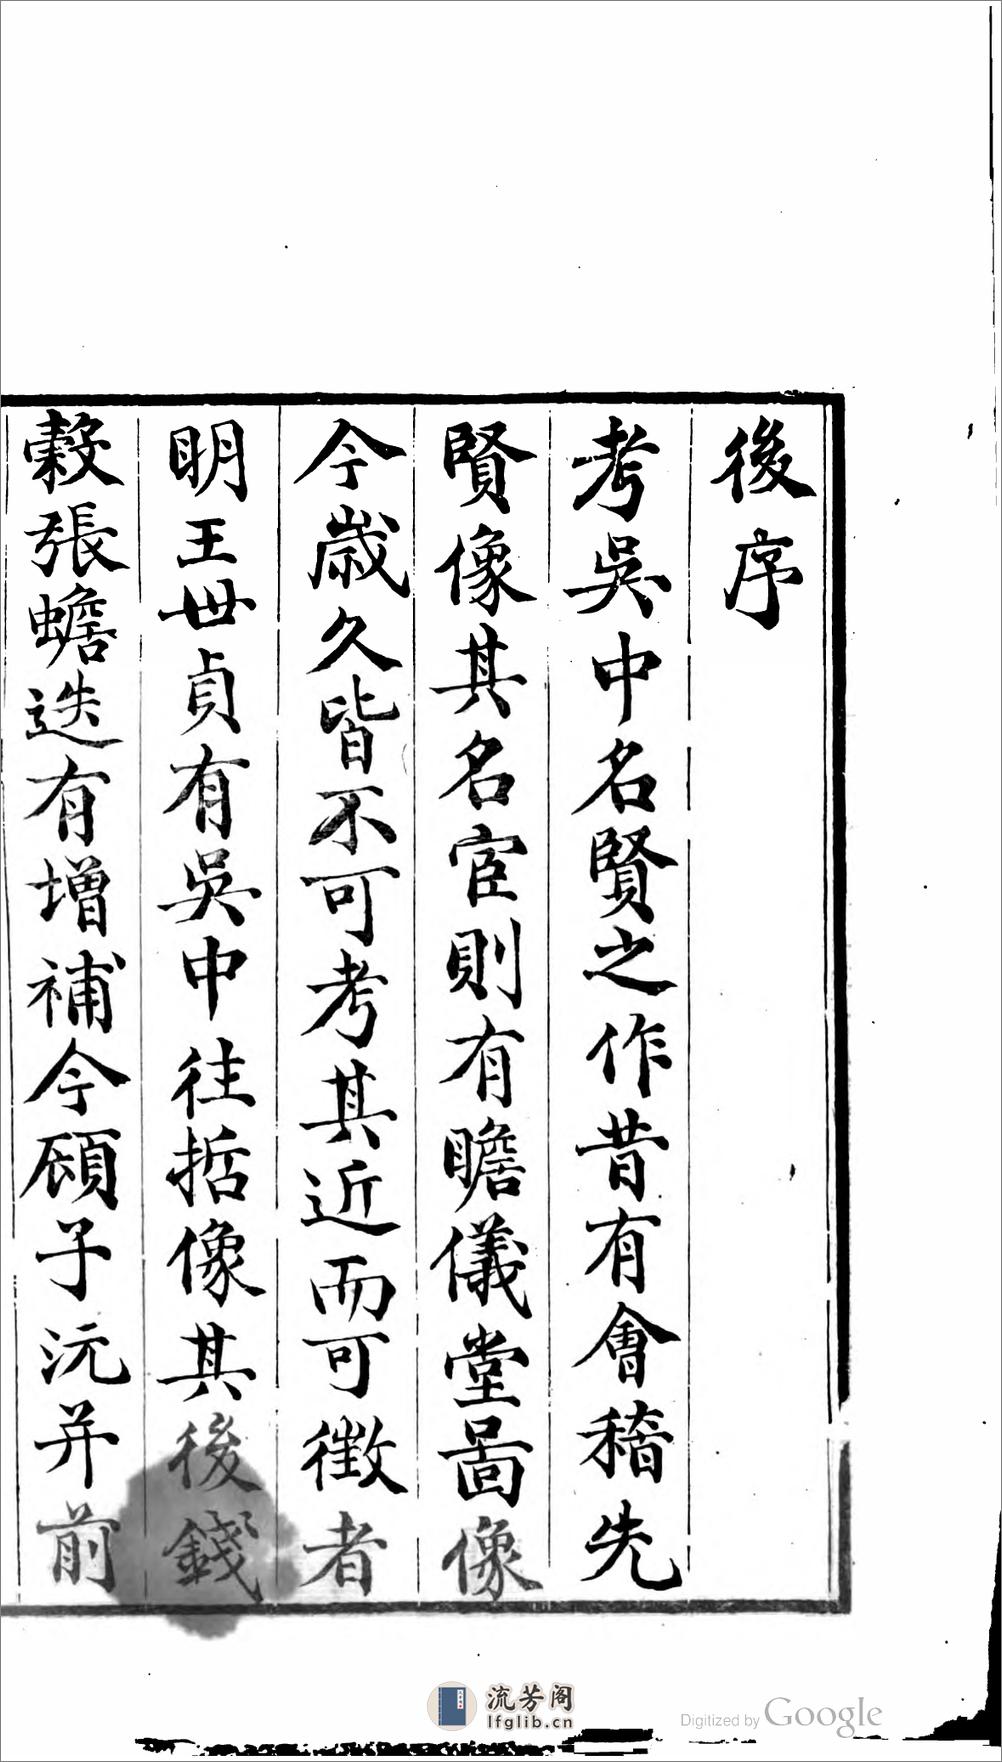 後序
考吳中名賢之作昔有會稽先
賢像其名宦則有瞻儀堂圖像
今歲久皆不可考其近而可徵者
明王世貞有吳中往哲像其後錢
穀張蟾迭有增補今顧子沅并前
流芳阁
lfglib.cn
Digitized by Google